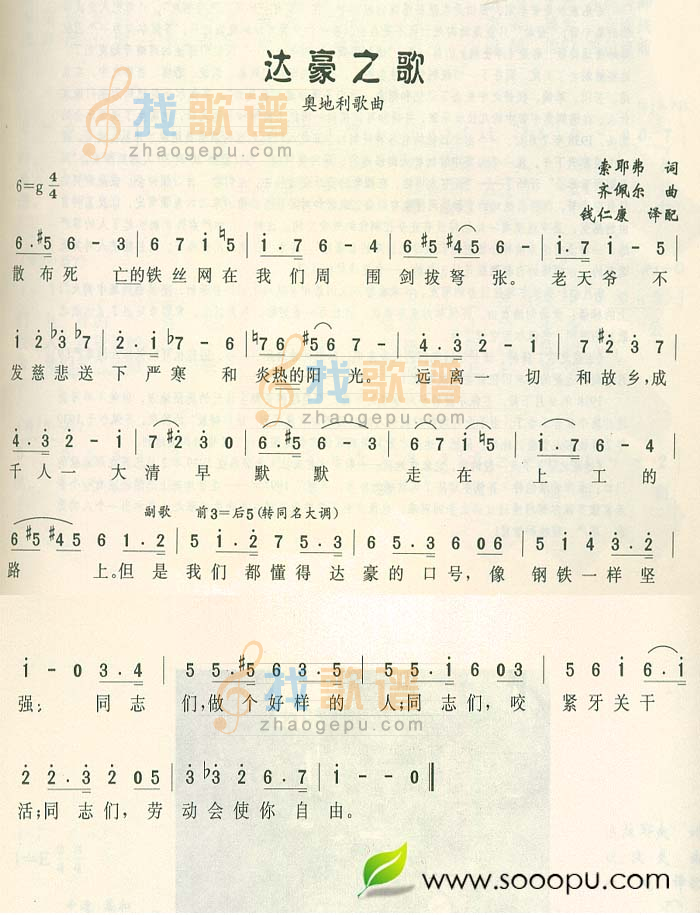 达豪之歌
奥地利歌曲
找歌谱
zhaogepu.com
索耶弗 词
6=g 4/4
齐佩尔 曲
钱仁康 译配
6.#5 6 - 3 | 6 7 i ♮5 | i.7 6 - 4 | 6 #5 #4 5 6 - | i.7 i 2
散布死 亡的铁丝网在我们周 围剑拔弩 张。老天爷 不
i 2 b3 b7 | 2.i b7 - 6 | ♮7 6 #5 6 7 - | 4.3 2 - i | 7 #2 3 7
发慈悲送下严寒 和炎热的阳 光。远离一 切和故乡,成
找歌谱
zhaogepu.com
4.3 2 - i | 7 #2 3 0 | 6.#5 6 - 3 | 6 7 i ♮5 | i.7 6 - 4
千人一 大清早默默 走在 上工的
副歌 前3=后5(转同名大调)
6 #5 #4 5 6 1.2 | 5 i.2 7 5. | 6 5.3 6 0 6 | 5 i 4 3.2
路 上。但是我们都懂得达豪的口号,像钢铁一样坚
i - 0 3.4 | 5 5.#5 6 3.5 | 5 5.i 6 0 3 | 5 6 i 6.i
强; 同志 们,做个好样的人;同志们,咬紧牙关干
找歌谱
zhaogepu.com
2 2.3 2 0 5 | 3 b3 2 6.7 | i - - 0 ‖
活;同志们,劳动会使你自由。
www.sooopu.com